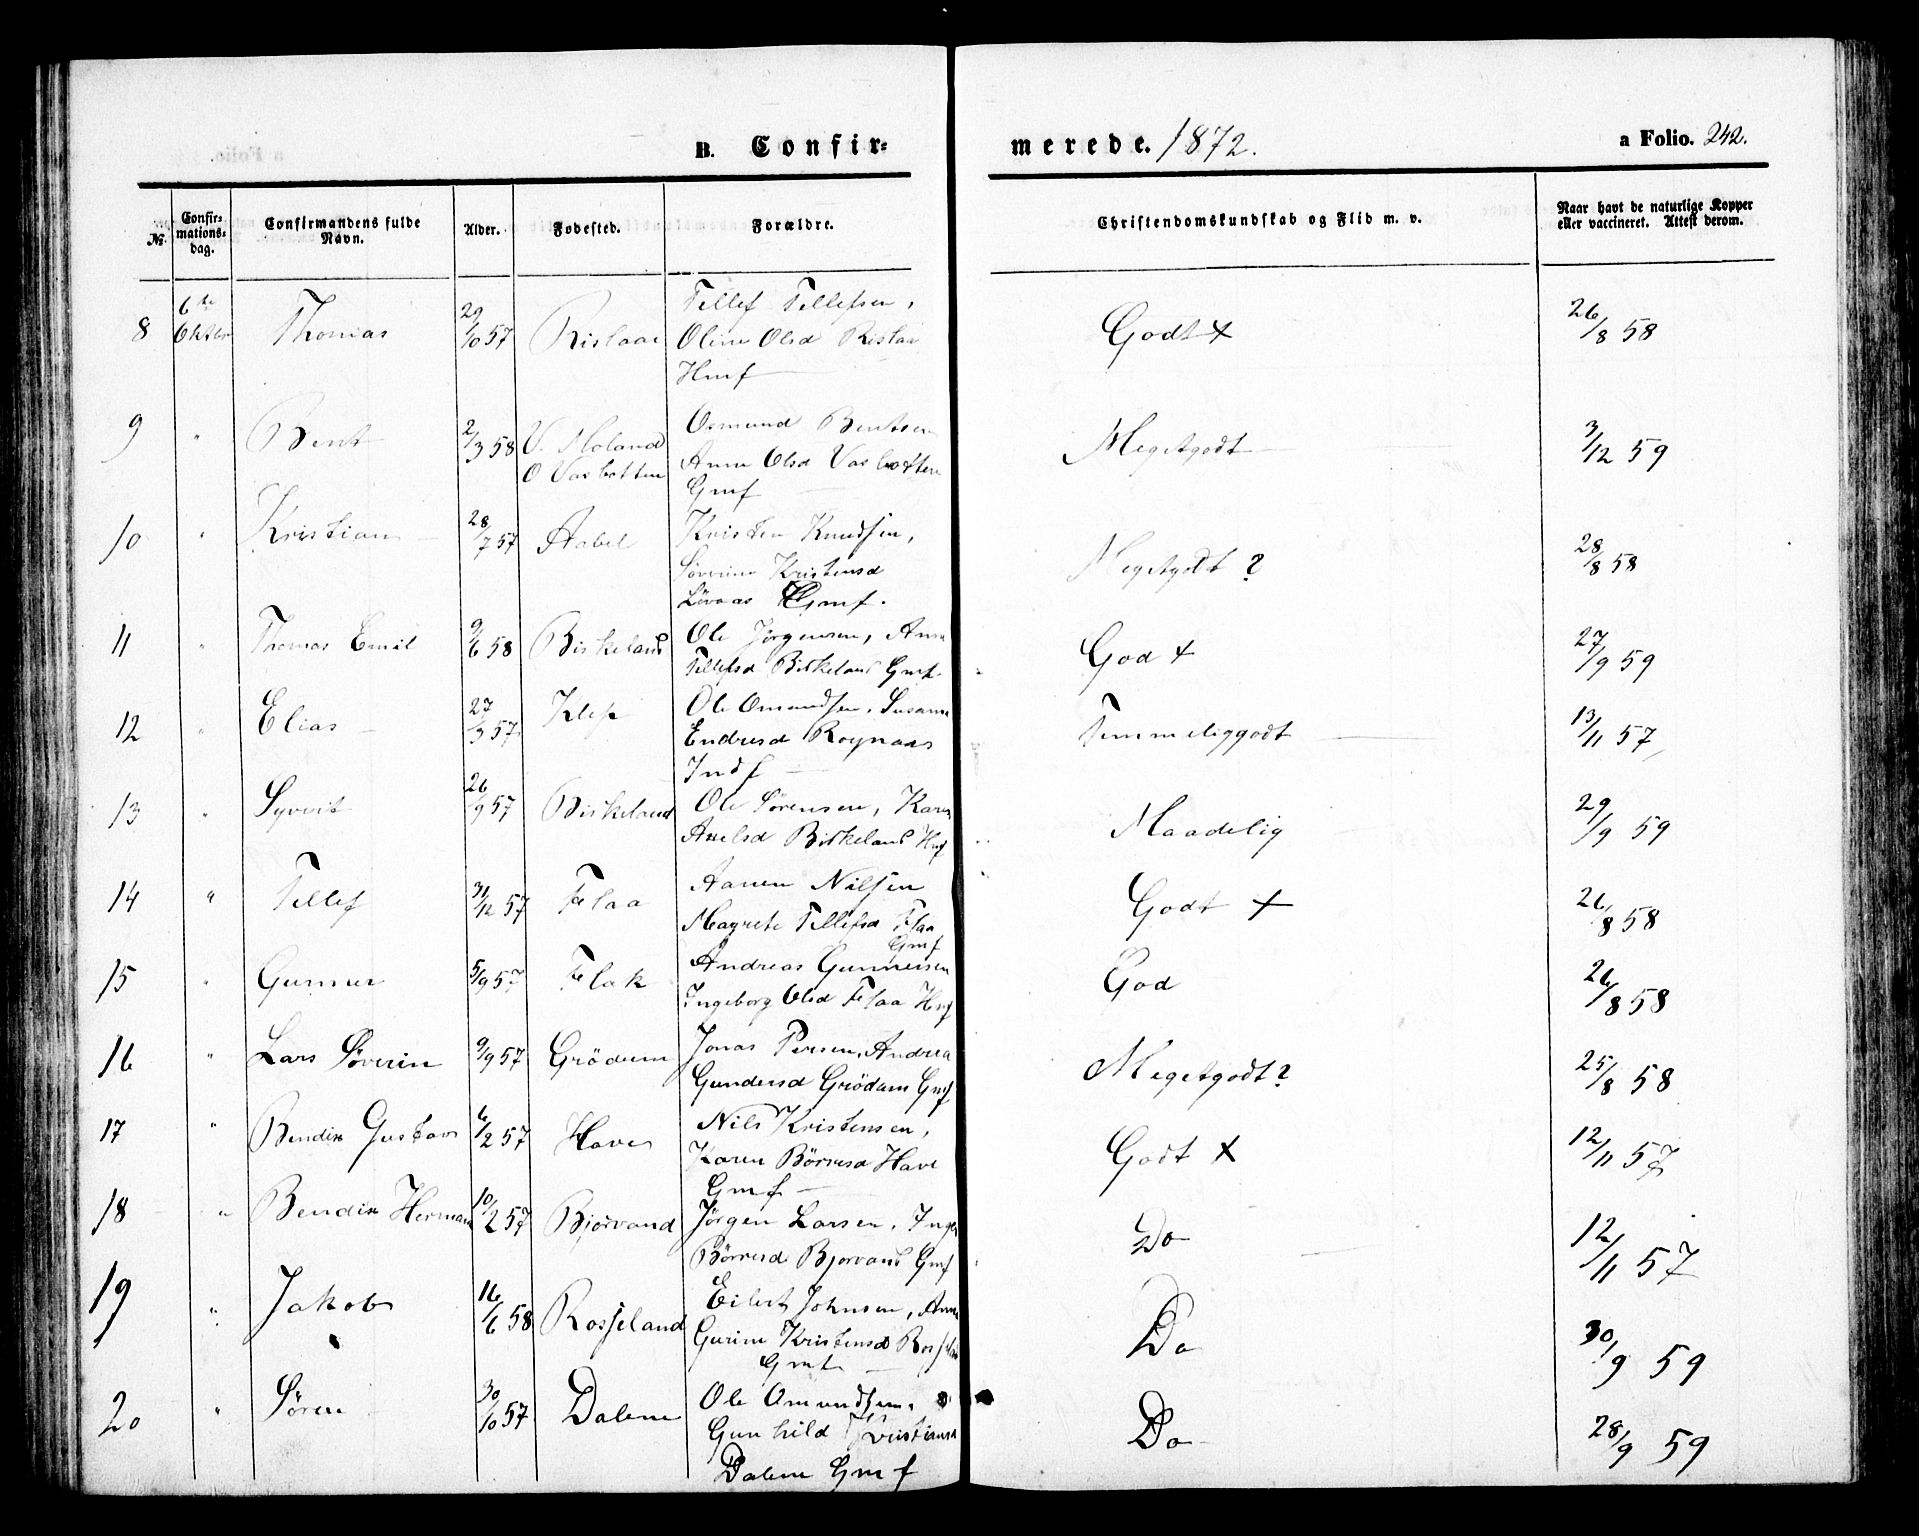 B. Confir-
merede. 1872.
a Folio. 242.
№
Confir-
mations-
dag.
Confirmandens fulde
Navn.
Alder.
Fødested.
Forældre.
Christendomskundskab og Flid m. v.
Naar havt de naturlige Kopper
eller vaccineret. Attest derom.
8 6te Oktbr Thomas 29/10 57 Rislaae
Tellef Tellefsen,
Oline Olsd Rislaa
Hmf
Godt + 26/8 58
9 " Bent 2/3 58 V. Moland
O Vasbotten
Osmund Bentsen
Anne Olsd Vasbotten
Gmf
Megetgodt 3/12 59
10 " Kristian 28/7 57 Aabel
Kristen Knudsen,
Søverine Kristensd
Løvaas Gmf.
Megetgodt ? 28/8 58
11 " Thomas Emil 9/6 58 Birkeland
Ole Jørgensen, Anne
Tellefsd Birkeland Gmf
God + 27/9 59
12 " Elias 27/3 57 Klep
Ole Omundsen, Susanne
Endresd Roynaas
Indf
Temmeliggodt 13/11 57
13 " Syvert 26/9 57 Birkeland
Ole Sørensen, Karen
Axelsd Birkeland Hmf
Maadelig 29/9 59
14 " Tellef 31/12 57 Flaa
Aanen Nilsen
Magrete Tellefsd Flaa
Gmf
Godt + 26/8 58
15 " Gunner 5/9 57 Flak
Andreas Gunnersen
Ingeborg Olsd Flaa Hmf
God 26/8 58
16 " Lars Søverin 9/9 57 Grödum
Jonas Persen, Andrea
Gundersd Grödum Gmf
Megetgodt ? 25/8 58
17 " Bendix Gustav 6/2 57 Have
Nils Kristensen,
Karen Börresd Have
Gmf
Godt + 12/11 57
18 " Bendix Herman 10/2 57 Bjorvand
Jørgen Larsen, Inger
Börresd Bjorvand Gmf
Do 12/11 57
19 " Jakob 16/6 58 Rosseland
Eilert Johnsen, Anne
Gurine Kristensd
Gmf
Do 30/9 59
20 " Søren 30/10 57 Dalene
Ole Omundsen,
Gunhild Kristiansd
Dalene Gmf
Do 28/9 59